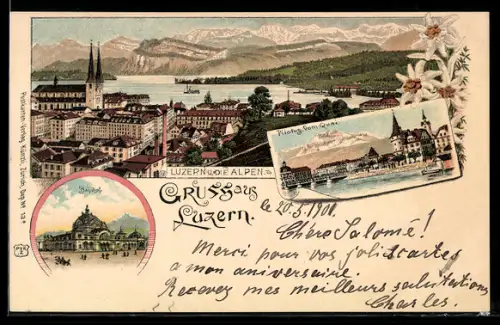 LUZERN U. DIE ALPEN
Pilatus vom Quai
Bahnhof
Gruss aus
Luzern.
le 20.5.1900.
Chère Salomé!
Merci pour vos jolis cartes
a mon anniversaire.
Recevez mes meilleurs salutations
Charles.
Postkarten-Verlag Künzli, Zürich, Dep. No